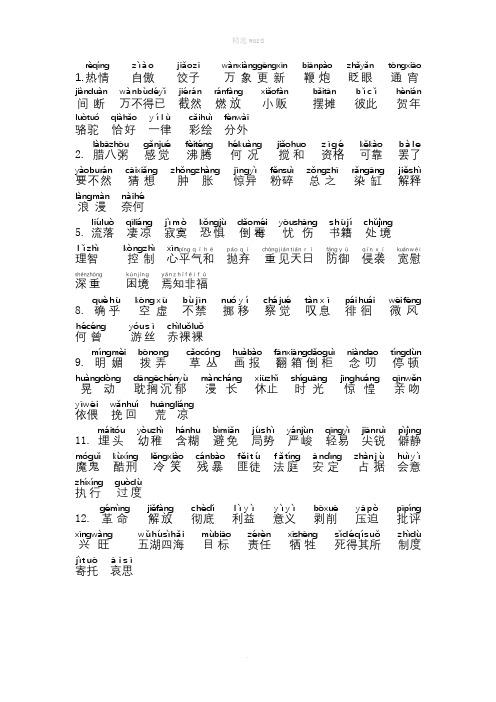 精选word
rèqíng zìào jiǎozi wànxiànggēngxīn biānpào zhǎyǎn tōngxiāo
1.热情 自傲 饺子 万象更新 鞭炮 眨眼 通宵
jiànduàn wànbùdéyǐ jiérán ránfàng xiǎofàn bǎitān bǐcǐ hènián
间断 万不得已 截然 燃放 小贩 摆摊 彼此 贺年
luòtuó qiàhǎo yílǜ cǎihuì fènwài
骆驼 恰好 一律 彩绘 分外
làbāzhōu gǎnjué fèiténg hékuàng jiǎohuo zīgé kěkào bàle
2. 腊八粥 感觉 沸腾 何况 搅和 资格 可靠 罢了
yàobùrán cāixiǎng zhǒngzhàng jīngyì fěnsuì zǒngzhī rǎngāng jiěshì
要不然 猜想 肿胀 惊异 粉碎 总之 染缸 解释
làngmàn nàihé
浪漫 奈何
liúluò qīliáng jìmò kǒngjù dǎoméi yōushāng shūjí chǔjìng
5. 流落 凄凉 寂寞 恐惧 倒霉 忧伤 书籍 处境
lǐzhì kòngzhì xīnpíngqìhé pāoqì chóngjiàntiānrì fángyù qīnxí kuānwèi
理智 控制 心平气和 抛弃 重见天日 防御 侵袭 宽慰
shēnzhòng kùnjìng yānzhīfēifú
深重 困境 焉知非福
quèhū kōngxū bùjīn nuóyí chájué tànxī páihuái wēifēng
8. 确乎 空虚 不禁 挪移 察觉 叹息 徘徊 微风
hécéng yóusī chìluǒluǒ
何曾 游丝 赤裸裸
míngmèi bōnong cǎocóng huàbào fānxiāngdǎoguì niàndao tíngdùn
9. 明媚 拨弄 草丛 画报 翻箱倒柜 念叨 停顿
huàngdòng dāngēchényù màncháng xiūzhǐ shíguāng jīnghuáng qīnwěn
晃动 耽搁沉郁 漫长 休止 时光 惊惶 亲吻
yīwēi wǎnhuí huāngliáng
依偎 挽回 荒凉
máitóu yòuzhì hánhu bìmiǎn júshì yánjùn qīngyì jiānruì pìjìng
11. 埋头 幼稚 含糊 避免 局势 严峻 轻易 尖锐 僻静
móguǐ kùxíng lěngxiào cánbào fěitú fǎtíng āndìng zhànjù huìyì
魔鬼 酷刑 冷笑 残暴 匪徒 法庭 安定 占据 会意
zhíxíng guòdù
执行 过度
gémìng jiěfàng chèdǐ lìyì yìyì bōxuē yāpò pīpíng
12. 革命 解放 彻底 利益 意义 剥削 压迫 批评
xīngwàng wǔhúsìhǎi mùbiāo zérèn xīshēng sǐdéqísuǒ zhìdù
兴旺 五湖四海 目标 责任 牺牲 死得其所 制度
jìtuō āisī
寄托 哀思